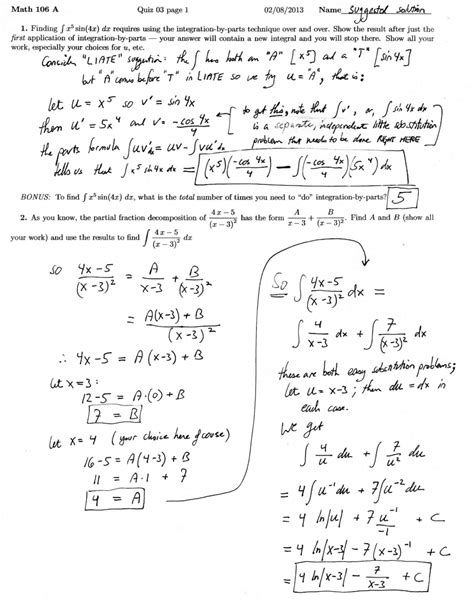 Math 106 A Quiz 03 page 1 02/08/2013 Name Suggested solution
1. Finding ∫ x⁵ sin(4x) dx requires using the integration-by-parts technique over and over. Show the result after just the
first application of integration-by-parts — your answer will contain a new integral and you will stop there. Show all your
work, especially your choices for u, etc.
Consider "LIATE" suggestion: the ∫ has both an "A" [x⁵] and a "T" [sin 4x]
but "A" comes before "T" in LIATE so we try u = "A", that is:
let u = x⁵ so v' = sin 4x
then u' = 5x⁴ and v = -cos 4x / 4
to get this, note that ∫ v', or, ∫ sin 4x dx
is a separate, independent little substitution
problem that needs to be done RIGHT HERE
the parts formula ∫ uv' dx = uv - ∫ vu' dx
tells us that ∫ x⁵ sin 4x dx = (x⁵)(-cos 4x / 4) - ∫ (-cos 4x / 4)(5x⁴) dx
BONUS: To find ∫ x⁵ sin(4x) dx, what is the total number of times you need to "do" integration-by-parts? 5
2. As you know, the partial fraction decomposition of (4x − 5)/(x − 3)² has the form A/(x − 3) + B/(x − 3)². Find A and B (show all
your work) and use the results to find ∫ (4x − 5)/(x − 3)² dx
so (4x-5)/(x-3)² = A/(x-3) + B/(x-3)²
= (A(x-3) + B)/(x-3)²
∴ 4x-5 = A(x-3) + B
Let x = 3:
12-5 = A·(0) + B
7 = B
let x = 4 (your choice here of course)
16-5 = A(4-3) + B
11 = A·1 + 7
4 = A
So ∫ (4x-5)/(x-3)² dx =
∫ 4/(x-3) dx + ∫ 7/(x-3)² dx
these are both easy substitution problems;
let u = x-3; then du = dx in
each case.
We get
∫ 4/u du + ∫ 7/u² du
= 4 ∫ u⁻¹ du + 7 ∫ u⁻² du
= 4 ln|u| + 7 u⁻¹/-1 + C
= 4 ln|x-3| - 7(x-3)⁻¹ + C
= 4 ln|x-3| - 7/(x-3) + C